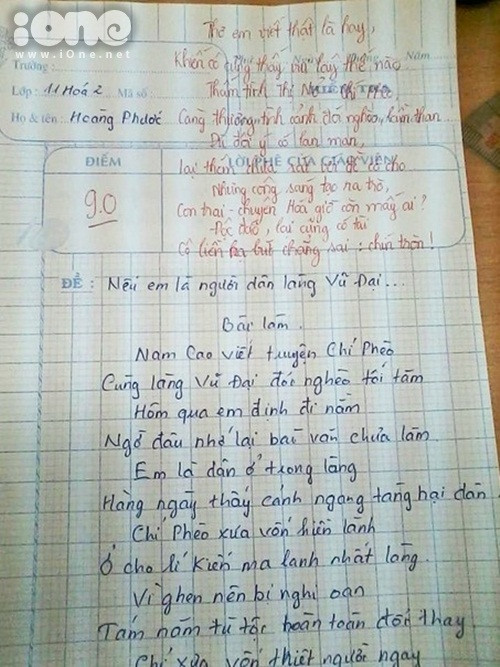 iOne
www.iOne.net
Thơ em viết thật là hay,
Khiến cô cũng thấy vui lây thế nào
Năm
Trường :
Thấm tình Thị Nở, Chí Phèo,
Lớp : 11 Hoá 2 Mã số :
Càng thương tình cảnh đói nghèo, lầm than
Họ & tên : Hoàng Phước
Dù đôi ý có lan man,
ĐIỂM
LỜI PHÊ CỦA GIÁO VIÊN
lại thêm chưa sát
Nhưng công sáng tạo ra trò,
9.0
Con trai - chuyên Hoá giờ còn mấy ai?
Độc đáo, lại cũng có tài
Cô liền hạ bút chẳng sai : chín tròn!
ĐỀ : Nếu em là người dân làng Vũ Đại...
Bài làm.
Nam Cao viết truyện Chí Phèo
Cùng làng Vũ Đại đói nghèo tối tăm
Hôm qua em định đi nằm
Ngờ đâu nhớ lại bài văn chưa làm
Em là dân ở trong làng
Hàng ngày thấy cảnh ngang tàng hại dân
Chí Phèo xưa vốn hiền lành
Ở cho lí Kiến ma lanh nhất làng.
Vì ghen nên bị nghi oan
Tám năm tù tội hoàn toàn đổi thay
Chí xưa vốn thiệt người ngay